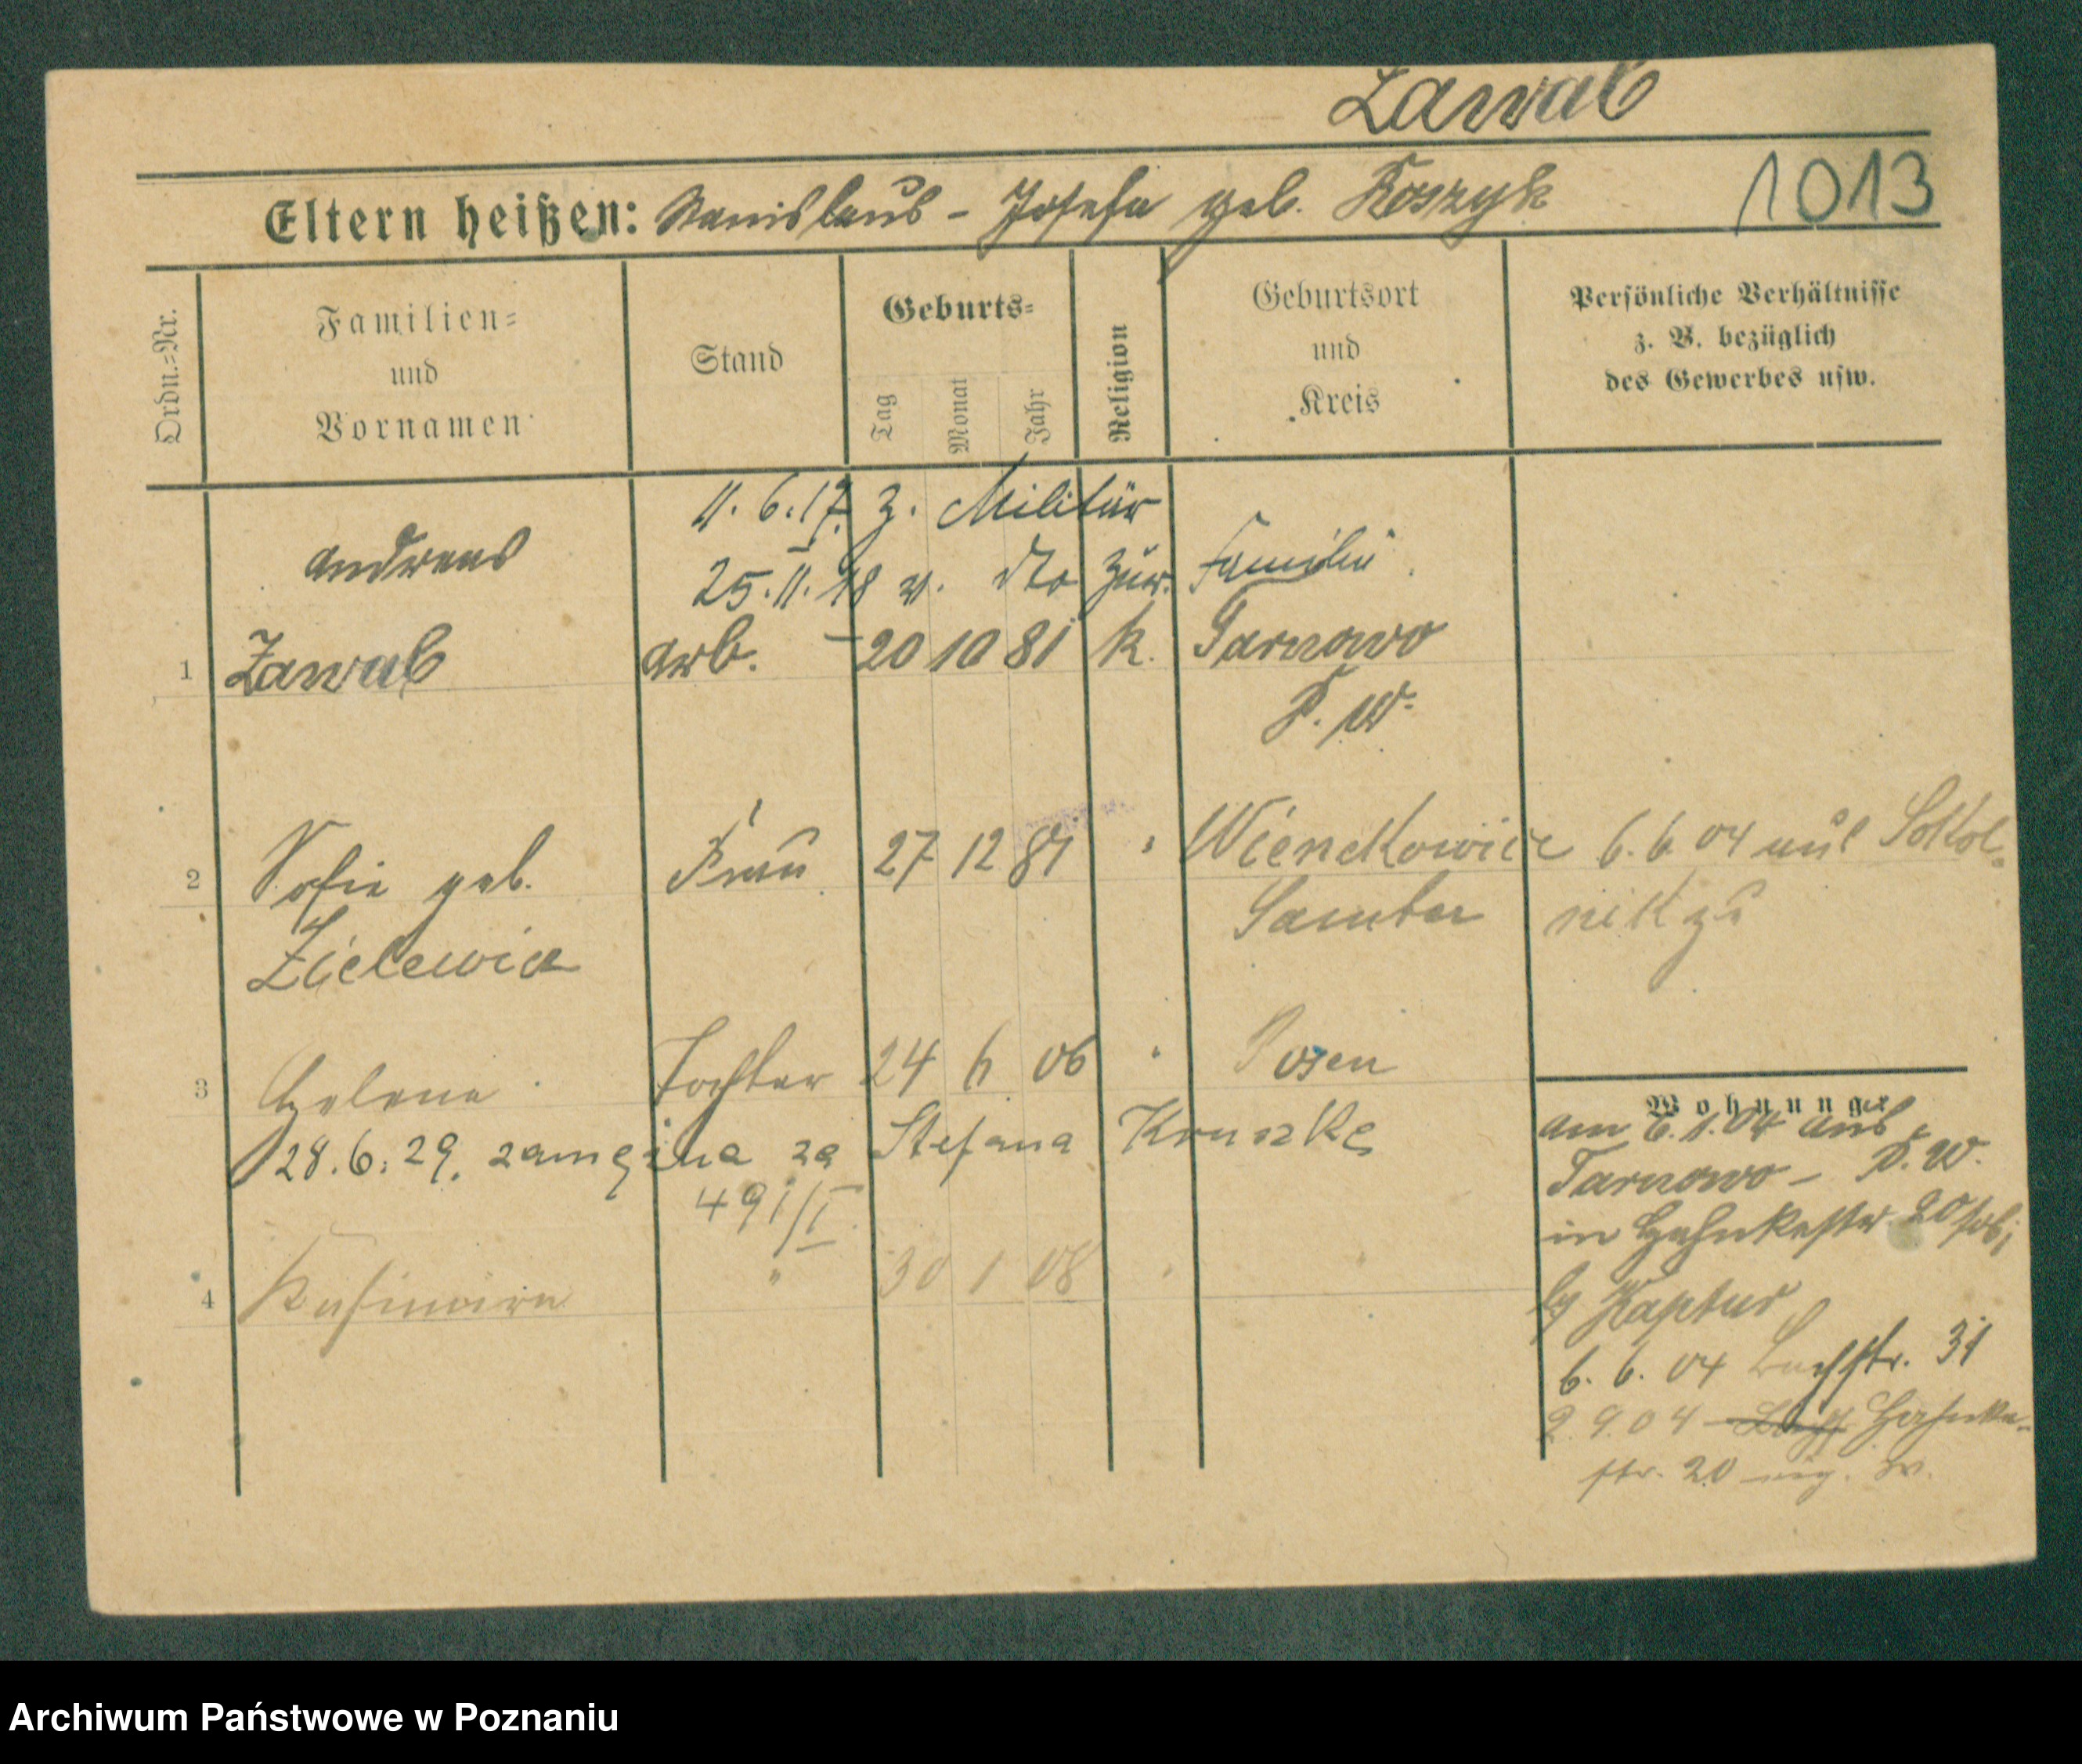 Zawal
Eltern heißen: Stanislaus - Josefa geb. Koszyk 1013
Ordn.-Nr.
Familien-
und
Vornamen
Stand
Geburts-
Tag
Monat
Jahr
Religion
Geburtsort
und
Kreis
Persönliche Verhältnisse
z. B. bezüglich
des Gewerbes usw.
11.6.17. z. Militär
Andreas
25.11.18 v. dto zur. Familie
1 Zawal Arb. 20 10 81 k. Tarnowo
P. W.
2 Sofie geb. Frau 27 12 " 6.6.04 aus
Zielewicz Samter zu
3 Helena Tochter 24 6 06 " Posen
28.6.29. zamężna za Stefana Kruszke
491/I
4 Kasimira " 30 1 08 " "
Wohnungen
am 6.1.04 aus
Tarnowo - P. W.
in Hahnkestr. 20
Kaptur
6.6.04 Bachstr. 31
2.9.04 Hahnke-
str. 20
Archiwum Państwowe w Poznaniu